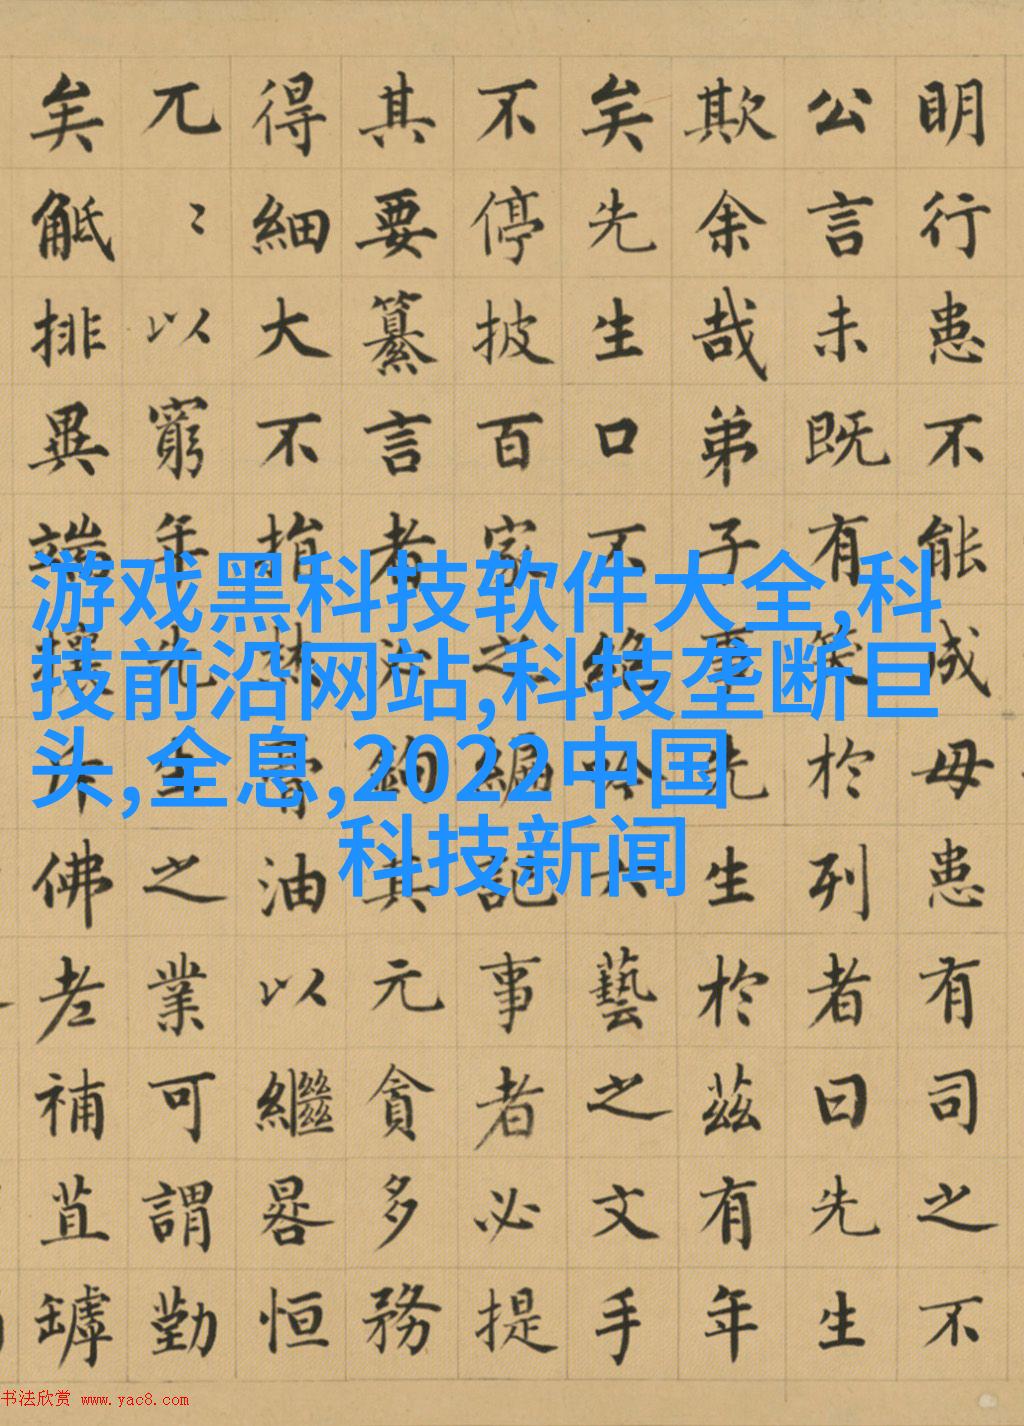 明行患不能成毋患有司之不
公言未既有笑於列者曰先生
欺余哉弟子事先生於茲有年
矣先生口不絶吟六藝之文手
不停披百家之編記事者必提
其要纂言者必鉤其元貪多務
得細大不捐焚膏油以繼晷恒
兀〻以窮年先生之業可謂勤
矣觝排異端攘斥佛老補苴罅
游戏黑科技软件大全,科
技前沿网站,科技垄断巨
头,全息,2022中国
科技新闻
书法欣赏 www.yac8.com